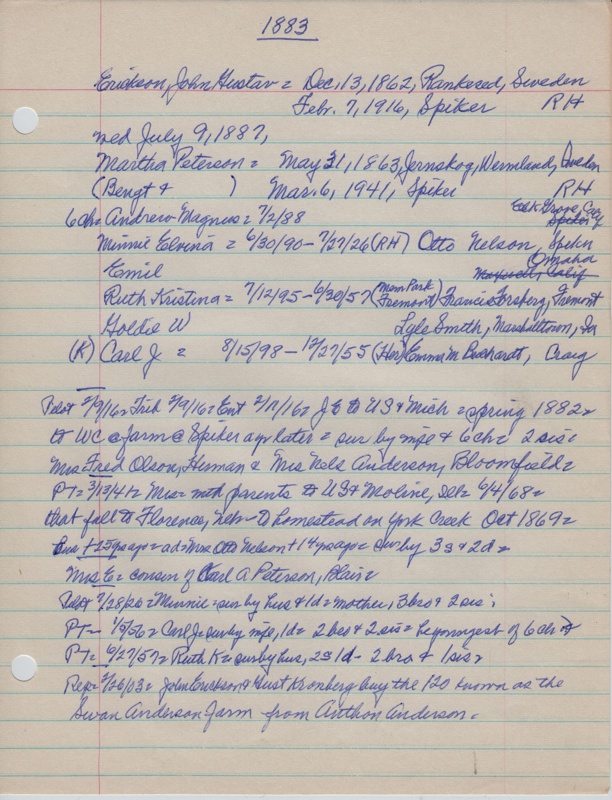 1883
Erickson, John Gustav = Dec. 13, 1862, Rankesed, Sweden
Febr. 7, 1916, Spiker RH
wed July 9, 1887,
Martha Peterson = May 31, 1863, Jernskog, Wermland, Sweden
(Bengt & ) Mar. 6, 1941, Spiker RH
6ch = Andrew Magnus = 7/2/88 Elk Grove, Calif Spiker
Minnie Elvina = 6/30/90 - 7/27/26 (RH) Otto Nelson, Spiker
Emil Omaha Calif
Ruth Kristina = 7/12/95 - 6/30/57 (Mem Park Fremont) Francis Forsberg, Fremont
Goldie W Lyle Smith, Marshalltown, Ia
(K) Carl J. = 8/15/98 - 12/27/55 (Her) Emma M Burhardt, Craig
Pilot 2/9/16 = Trib 2/9/16 = Ent 2/17/16 = J E to US & Mich = spring 1882 =
to WC @ farm @ Spiker a yr later = sur by wife & 6 ch = 2 sis =
Mrs Fred Olson, Herman & Mrs Nels Anderson, Bloomfield =
PT = 3/13/41 = Mrs = with parents to US & Moline, Ill = 6/4/68 =
that fall to Florence, Neb - to homestead on York Creek Oct 1869 =
hus + 25 yrs ago = ad = Mrs Otto Nelson + 14 yrs ago = sur by 3 s & 2 d =
Mrs E = cousin of Carl A Peterson, Blair =
Pilot 7/28/26 = Minnie = sur by hus & 1d = mother, 3 bro & 2 sis;
PT - 1/5/56 = Carl J = sur by wife, 1d = 2 bro & 2 sis = he youngest of 6 ch
PT = 6/27/57 = Ruth K = sur by hus, 2s 1d - 2 bro & 1 sis =
Rep = 2/26/03 = John Erickson & Gust Kronberg buy the 120 known as the
Swan Anderson farm from Anthon Anderson.